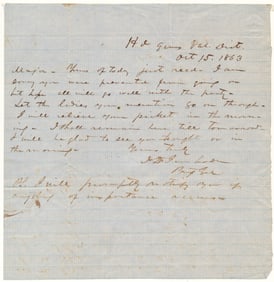 Hd Qrs Val Dist.
Oct 15, 1863
Major - Yours of today just recd. I am
sorry you were prevented from going on
but hope all will go well with the party.
Let the ladies you mention go on through.
I will relieve your picket in the morn-
ing. I shall remain here till tomorrow
& will be glad to see you tonight or in
the morning. Yours truly
Brig Gen
PS I will promptly notify you if
anything of importance occurs